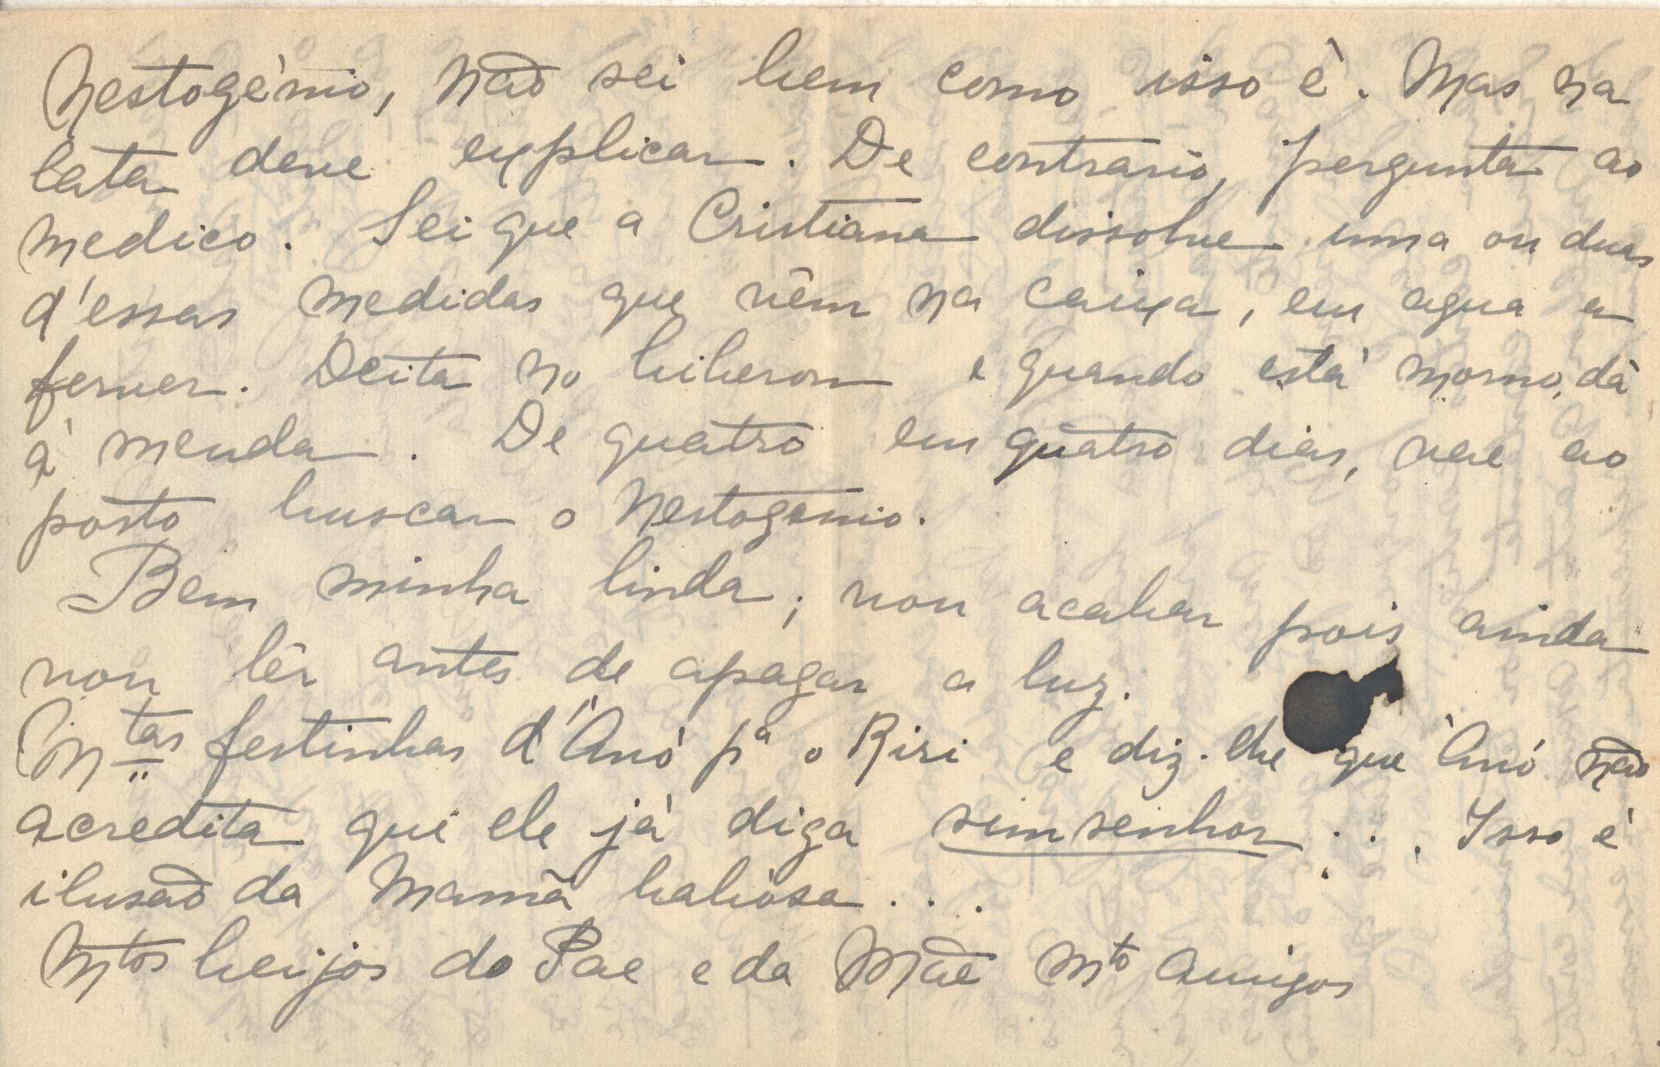 Nestogénio, não sei bem como isso é. Mas na
lata deve explicar. De contrario, pergunta ao
medico. Sei que a Cristiana dissolve uma ou duas
d'essas medidas que vêm na caixa, em agua a
ferver. Deita no biberom e quando está morno, dá
á menda. De quatro em quatro dias, vae ao
posto buscar o Nestogenio.
Bem minha linda; vou acabar pois ainda
vou lêr antes de apagar a luz.
Mtas festinhas d'"Anó pa o Riri e diz-lhe que Anó não
acredita que ele já diga sim senhor... Isso é
ilusão da Mamã babosa...
Mtos beijos do Pae e da Mãe Mto Amigos